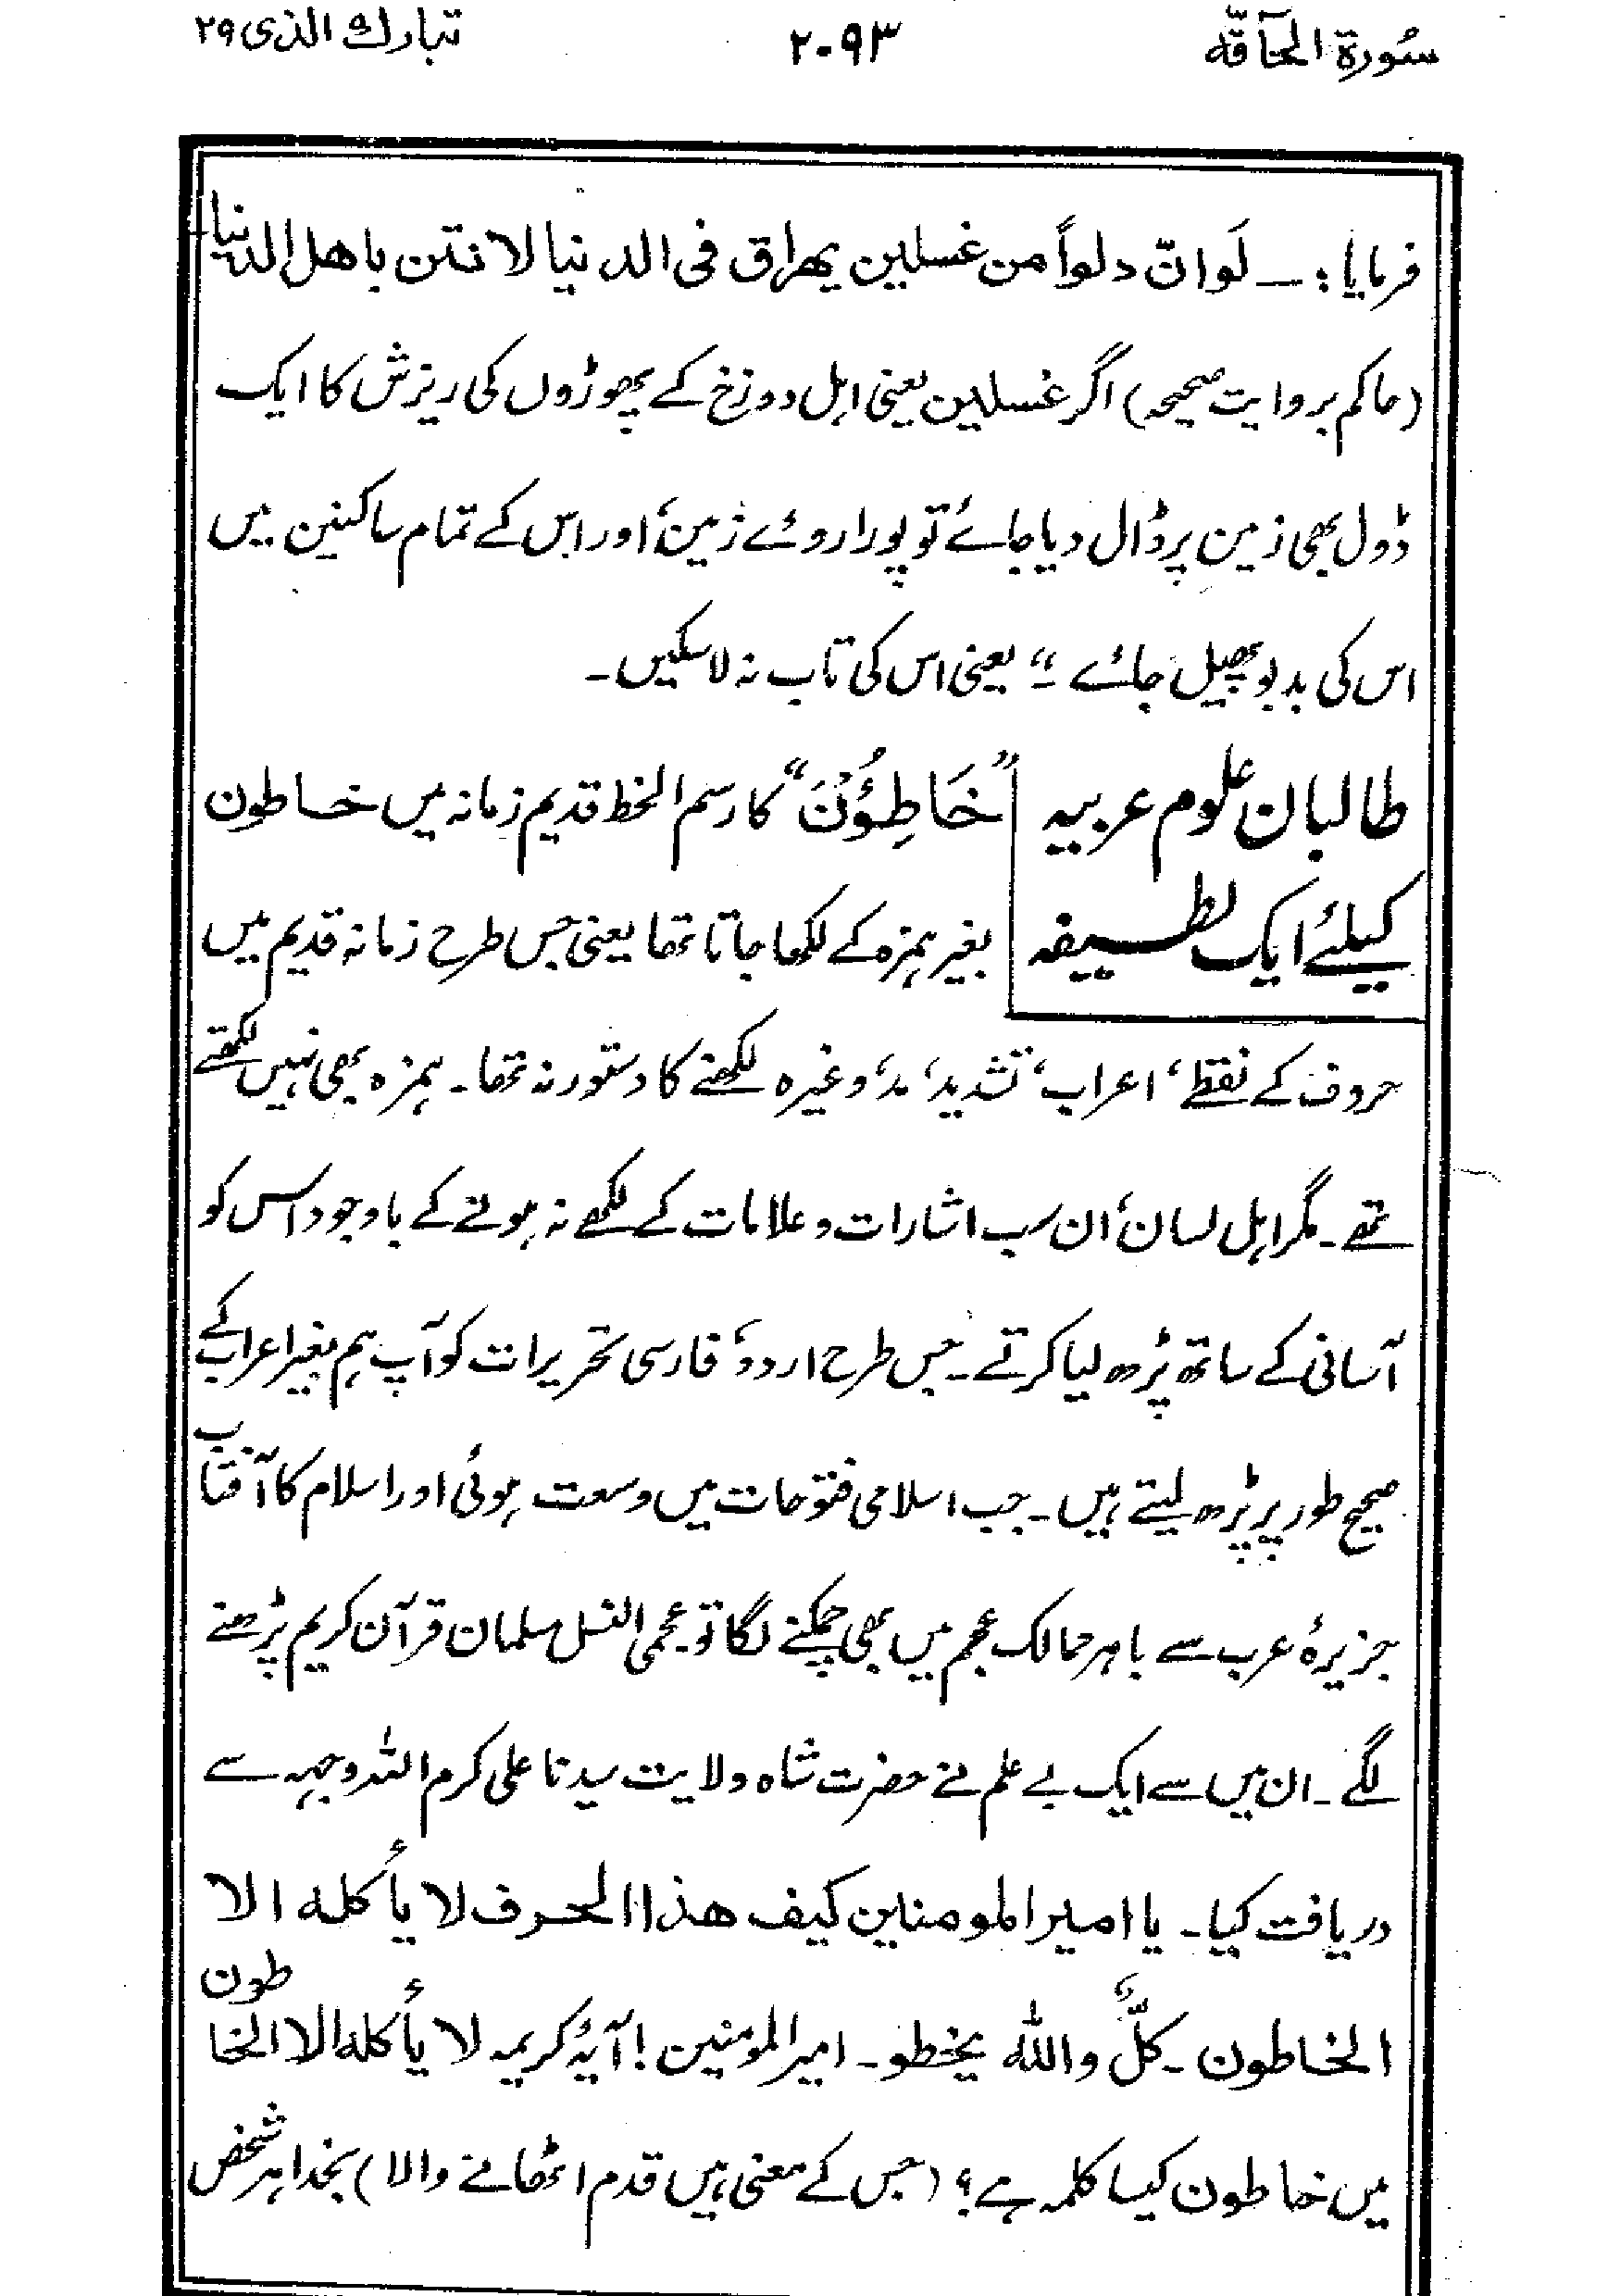 سُورة الحآقّه ۲۰۹۳ تبارك الذی ۲۹
فرمایا: ـ لَوانّ دلواً من غسلین یهراق فی الدنیا لانتن باهل الدنیا
(حاکم بروایت صحیحہ) اگر غسلین یعنی اہل دوزخ کے پھوڑوں کی ریزش کا ایک
ڈول بھی زمین پر ڈال دیا جائے تو پورا روئے زمین، اور اس کے تمام ساکنین میں
اس کی بدبو پھیل جائے ۔“ یعنی اس کی تاب نہ لا سکیں ۔
طالبان علوم عربیہ ”خَاطِئُوْنَ“ کا رسم الخط قدیم زمانہ میں خاطون
کیلئے ایک لطیفہ بغیر ہمزہ کے لکھا جاتا تھا یعنی جس طرح زمانہ قدیم میں
حروف کے نقطے، اعراب، تشدید، مد، وغیرہ لکھنے کا دستور نہ تھا۔ ہمزہ بھی نہیں لکھتے
تھے ۔ مگر اہل لسان، ان سب اشارات و علامات کے لکھے نہ ہونے کے باوجود اس کو
آسانی کے ساتھ پڑھ لیا کرتے ۔ جس طرح اردو، فارسی تحریرات کو آپ ہم بغیر اعراب کے
صحیح طور پر پڑھ لیتے ہیں ۔ جب اسلامی فتوحات میں وسعت ہوئی اور اسلام کا آفتاب
جزیرۂ عرب سے باہر ممالک عجم میں بھی چمکنے لگا تو عجمی النسل مسلمان قرآن کریم پڑھنے
لگے ۔ ان میں سے ایک بے علم نے حضرت شاہ ولایت سیدنا علی کرم اللہ وجہہ سے
دریافت کیا ۔ یا امیر المومنین کیف هذا الحرف لا یأکله الا
الخاطون ۔ کلٌّ واللہ یخطو ۔ امیر المومنین! آیۂ کریمہ لا یأکله الا الخاطون
میں خاطون کیسا کلمہ ہے؟ (جس کے معنی ہیں قدم اٹھانے والا) بخدا ہر شخص